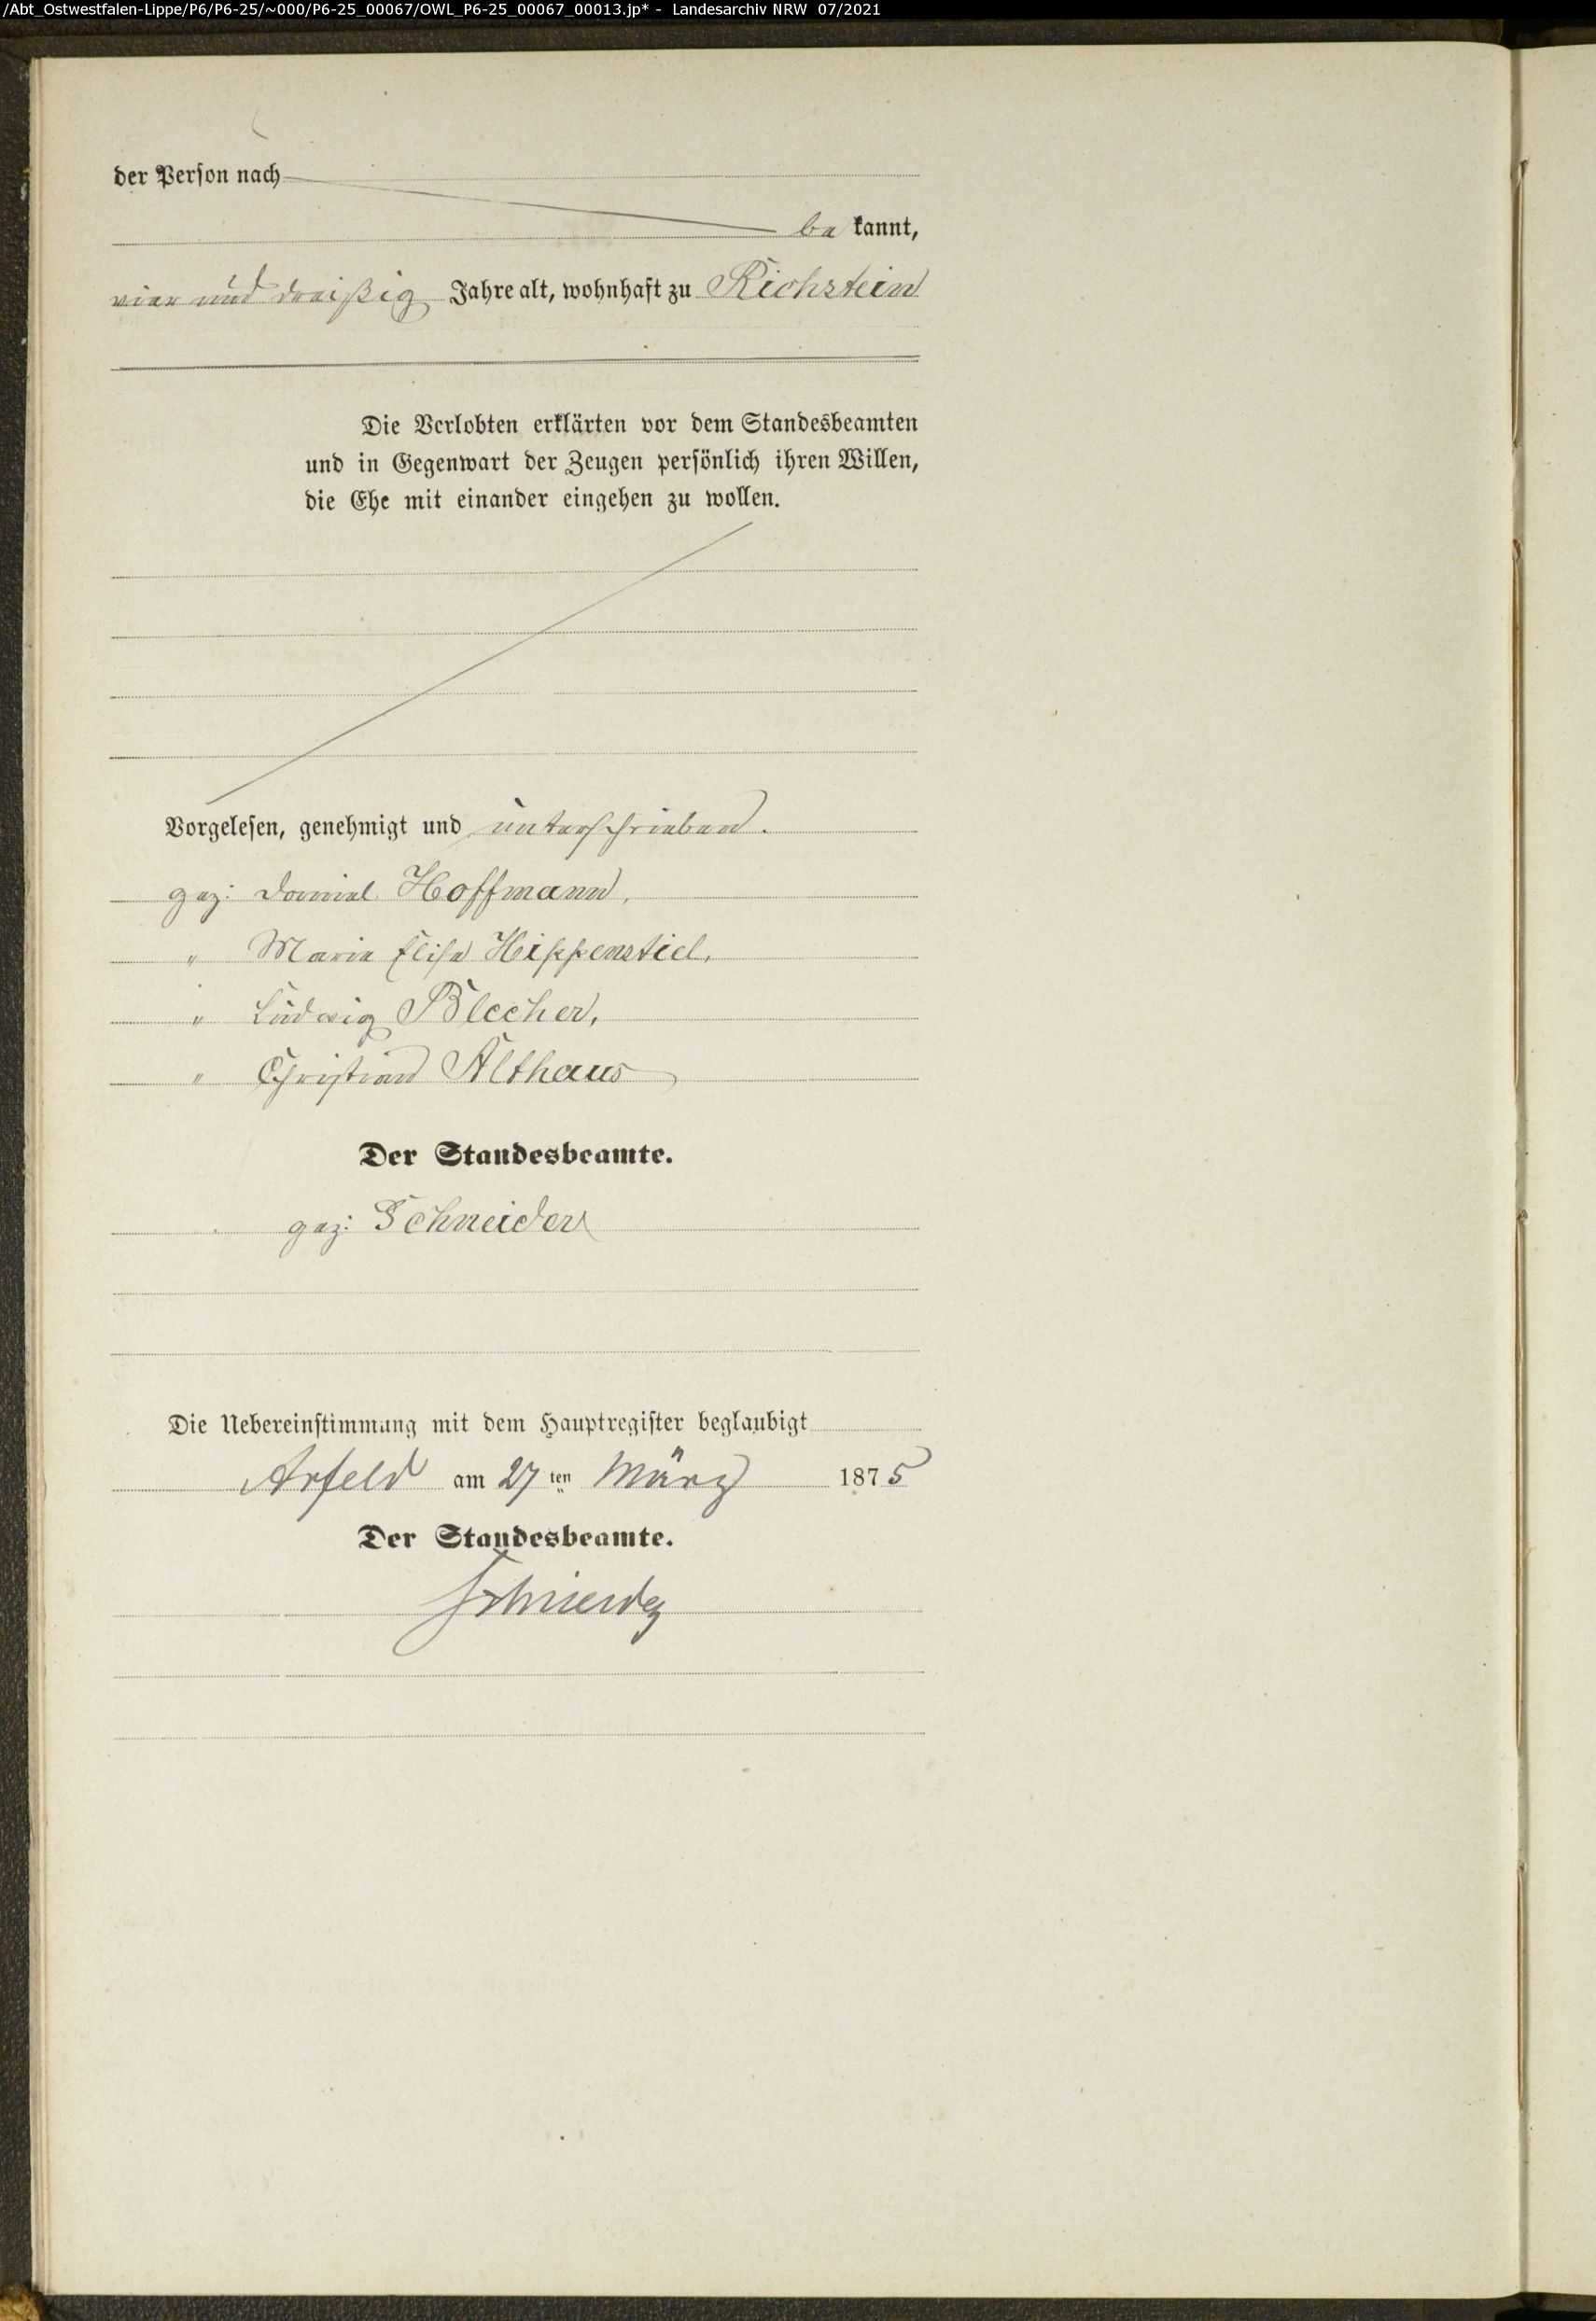 /Abt_Ostwestfalen-Lippe/P6/P6-25/~000/P6-25_00067/OWL_P6-25_00067_00013.jp* - Landesarchiv NRW 07/2021
der Person nach
be kannt,
vier und dreißig Jahre alt, wohnhaft zu Richstein
Die Verlobten erklärten vor dem Standesbeamten
und in Gegenwart der Zeugen persönlich ihren Willen,
die Ehe mit einander eingehen zu wollen.
Vorgelesen, genehmigt und unterschrieben.
gez: Daniel Hoffmann,
" Maria Elisa Hippenstiel,
" Ludwig Blecher,
" Christian Althaus
Der Standesbeamte.
gez: Schneider
Die Uebereinstimmung mit dem Hauptregister beglaubigt
Arfeld am 27 ten März 1875
Der Standesbeamte.
Schneider